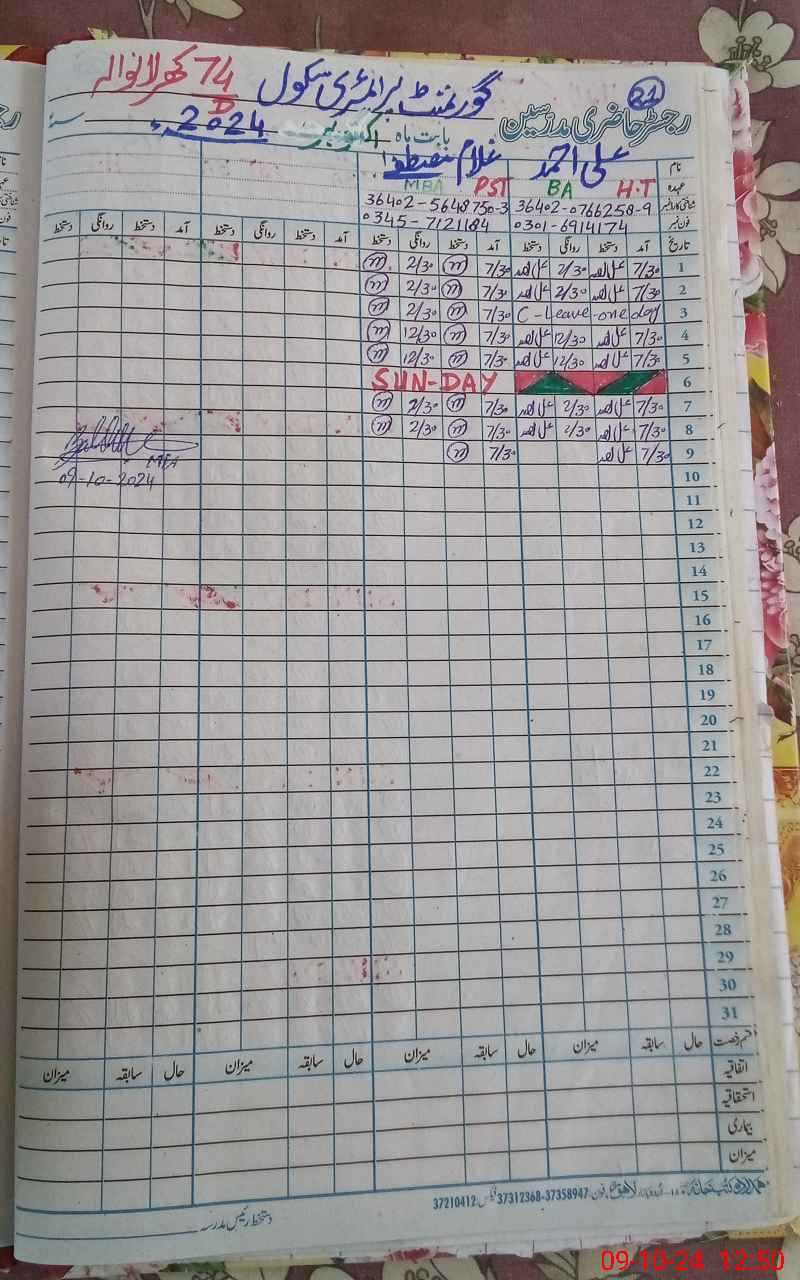 21
گورنمنٹ پرائمری سکول 74/D کھرلانوالہ
رجسٹر حاضری مدرسین بابت ماہ اکتوبر 2024ء سنہ
نام علی احمد غلام مصطفیٰ
عہدہ H.T BA PST MBA
شناختی کارڈ نمبر 36402-0766258-9 36402-5648750-3
فون نمبر 0301-6914174 0345-7121184
تاریخ آمد دستخط روانگی دستخط آمد دستخط روانگی دستخط آمد دستخط روانگی دستخط آمد دستخط روانگی دستخط
1 7/30 علی احمد 2/30 علی احمد 7/30 m 2/30 m
2 7/30 علی احمد 2/30 علی احمد 7/30 m 2/30 m
3 C-Leave-one day 7/30 m 2/30 m
4 7/30 علی احمد 12/30 علی احمد 7/30 m 12/30 m
5 7/30 علی احمد 12/30 علی احمد 7/30 m 12/30 m
6 SUN-DAY
7 7/30 علی احمد 2/30 علی احمد 7/30 m 2/30 m
8 7/30 علی احمد 2/30 علی احمد 7/30 m 2/30 m
9 7/30 علی احمد 7/30 m
MEA
09-10-2024
10
11
12
13
14
15
16
17
18
19
20
21
22
23
24
25
26
27
28
29
30
31
قسم رخصت حال سابقہ میزان حال سابقہ میزان حال سابقہ میزان حال سابقہ میزان
اتفاقیہ
استحقاقیہ
بیماری
میزان
اردو بازار لاہور فون: 37358947-37312368 فیکس: 37210412
دستخط رئیس مدرسہ
09-10-24 12:50